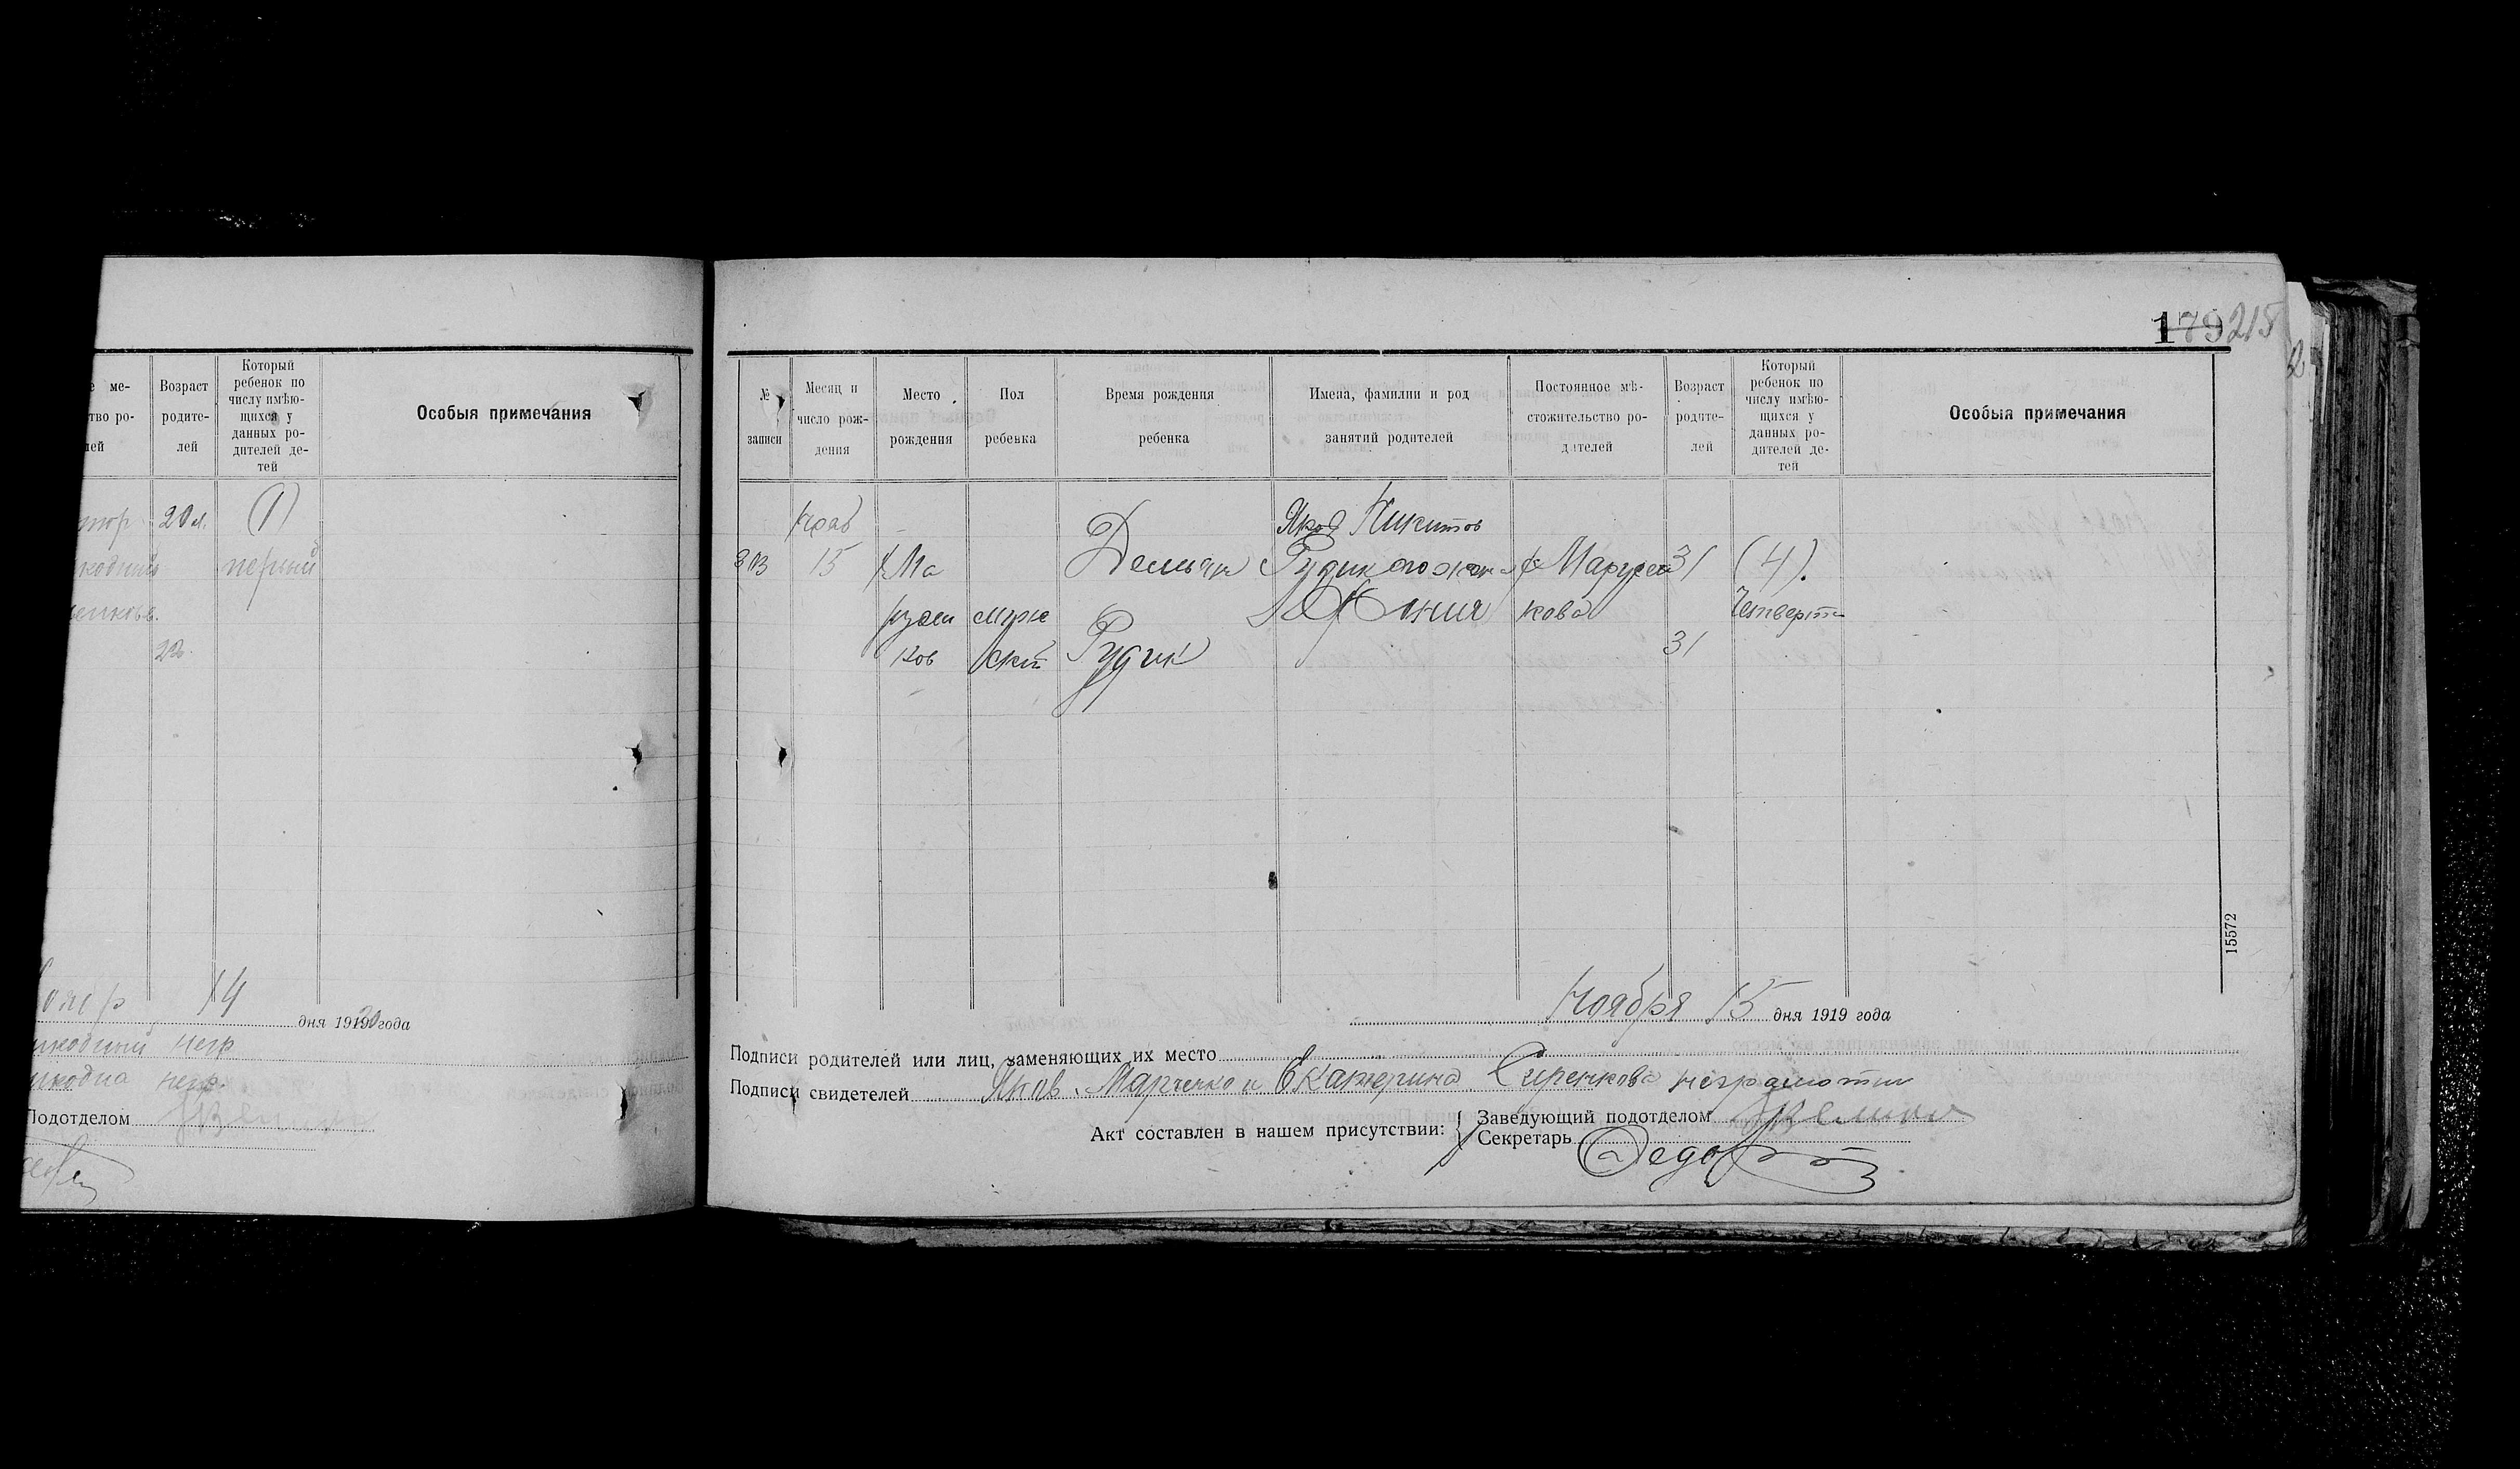 Возраст родите- лей
Который ребенок по числу имѣю- щихся у данных ро- дителей де- тей
Особыя примечания
20 л.
(1)
первый
22
14
дня 1920 года
негр
негр.
Подотделом
179 215
№ записи
Месяц и число рож- дения
Место рождения
Пол ребенка
Время рождения ребенка
Имена, фамилии и род занятий родителей
Постоянное мѣ- стожительство ро- дителей
Возраст родите- лей
Который ребенок по числу имѣю- щихся у данных ро- дителей де- тей
Особыя примечания
Нояб
Яков Никитов
303
15
Ма
Демьян
Рудик его жена
Марусен
31
(4).
русен
муже
кова
Четверты
ков
ский
Рудик
31
15572
Ноября 15 дня 1919 года
Подписи родителей или лиц, заменяющих их место
Подписи свидетелей Яков Марченко и Екатерина Сиренкова неграмотны
Акт составлен в нашем присутствии:
Заведующий подотделом
Секретарь